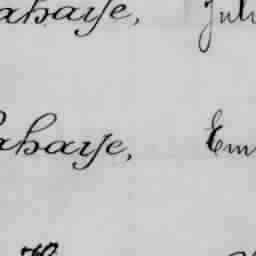 ahaye, Juli
ahaye, Em